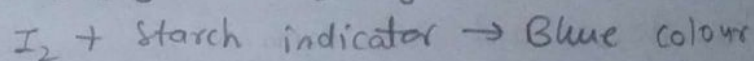 I₂ + Starch indicator → Blue colour